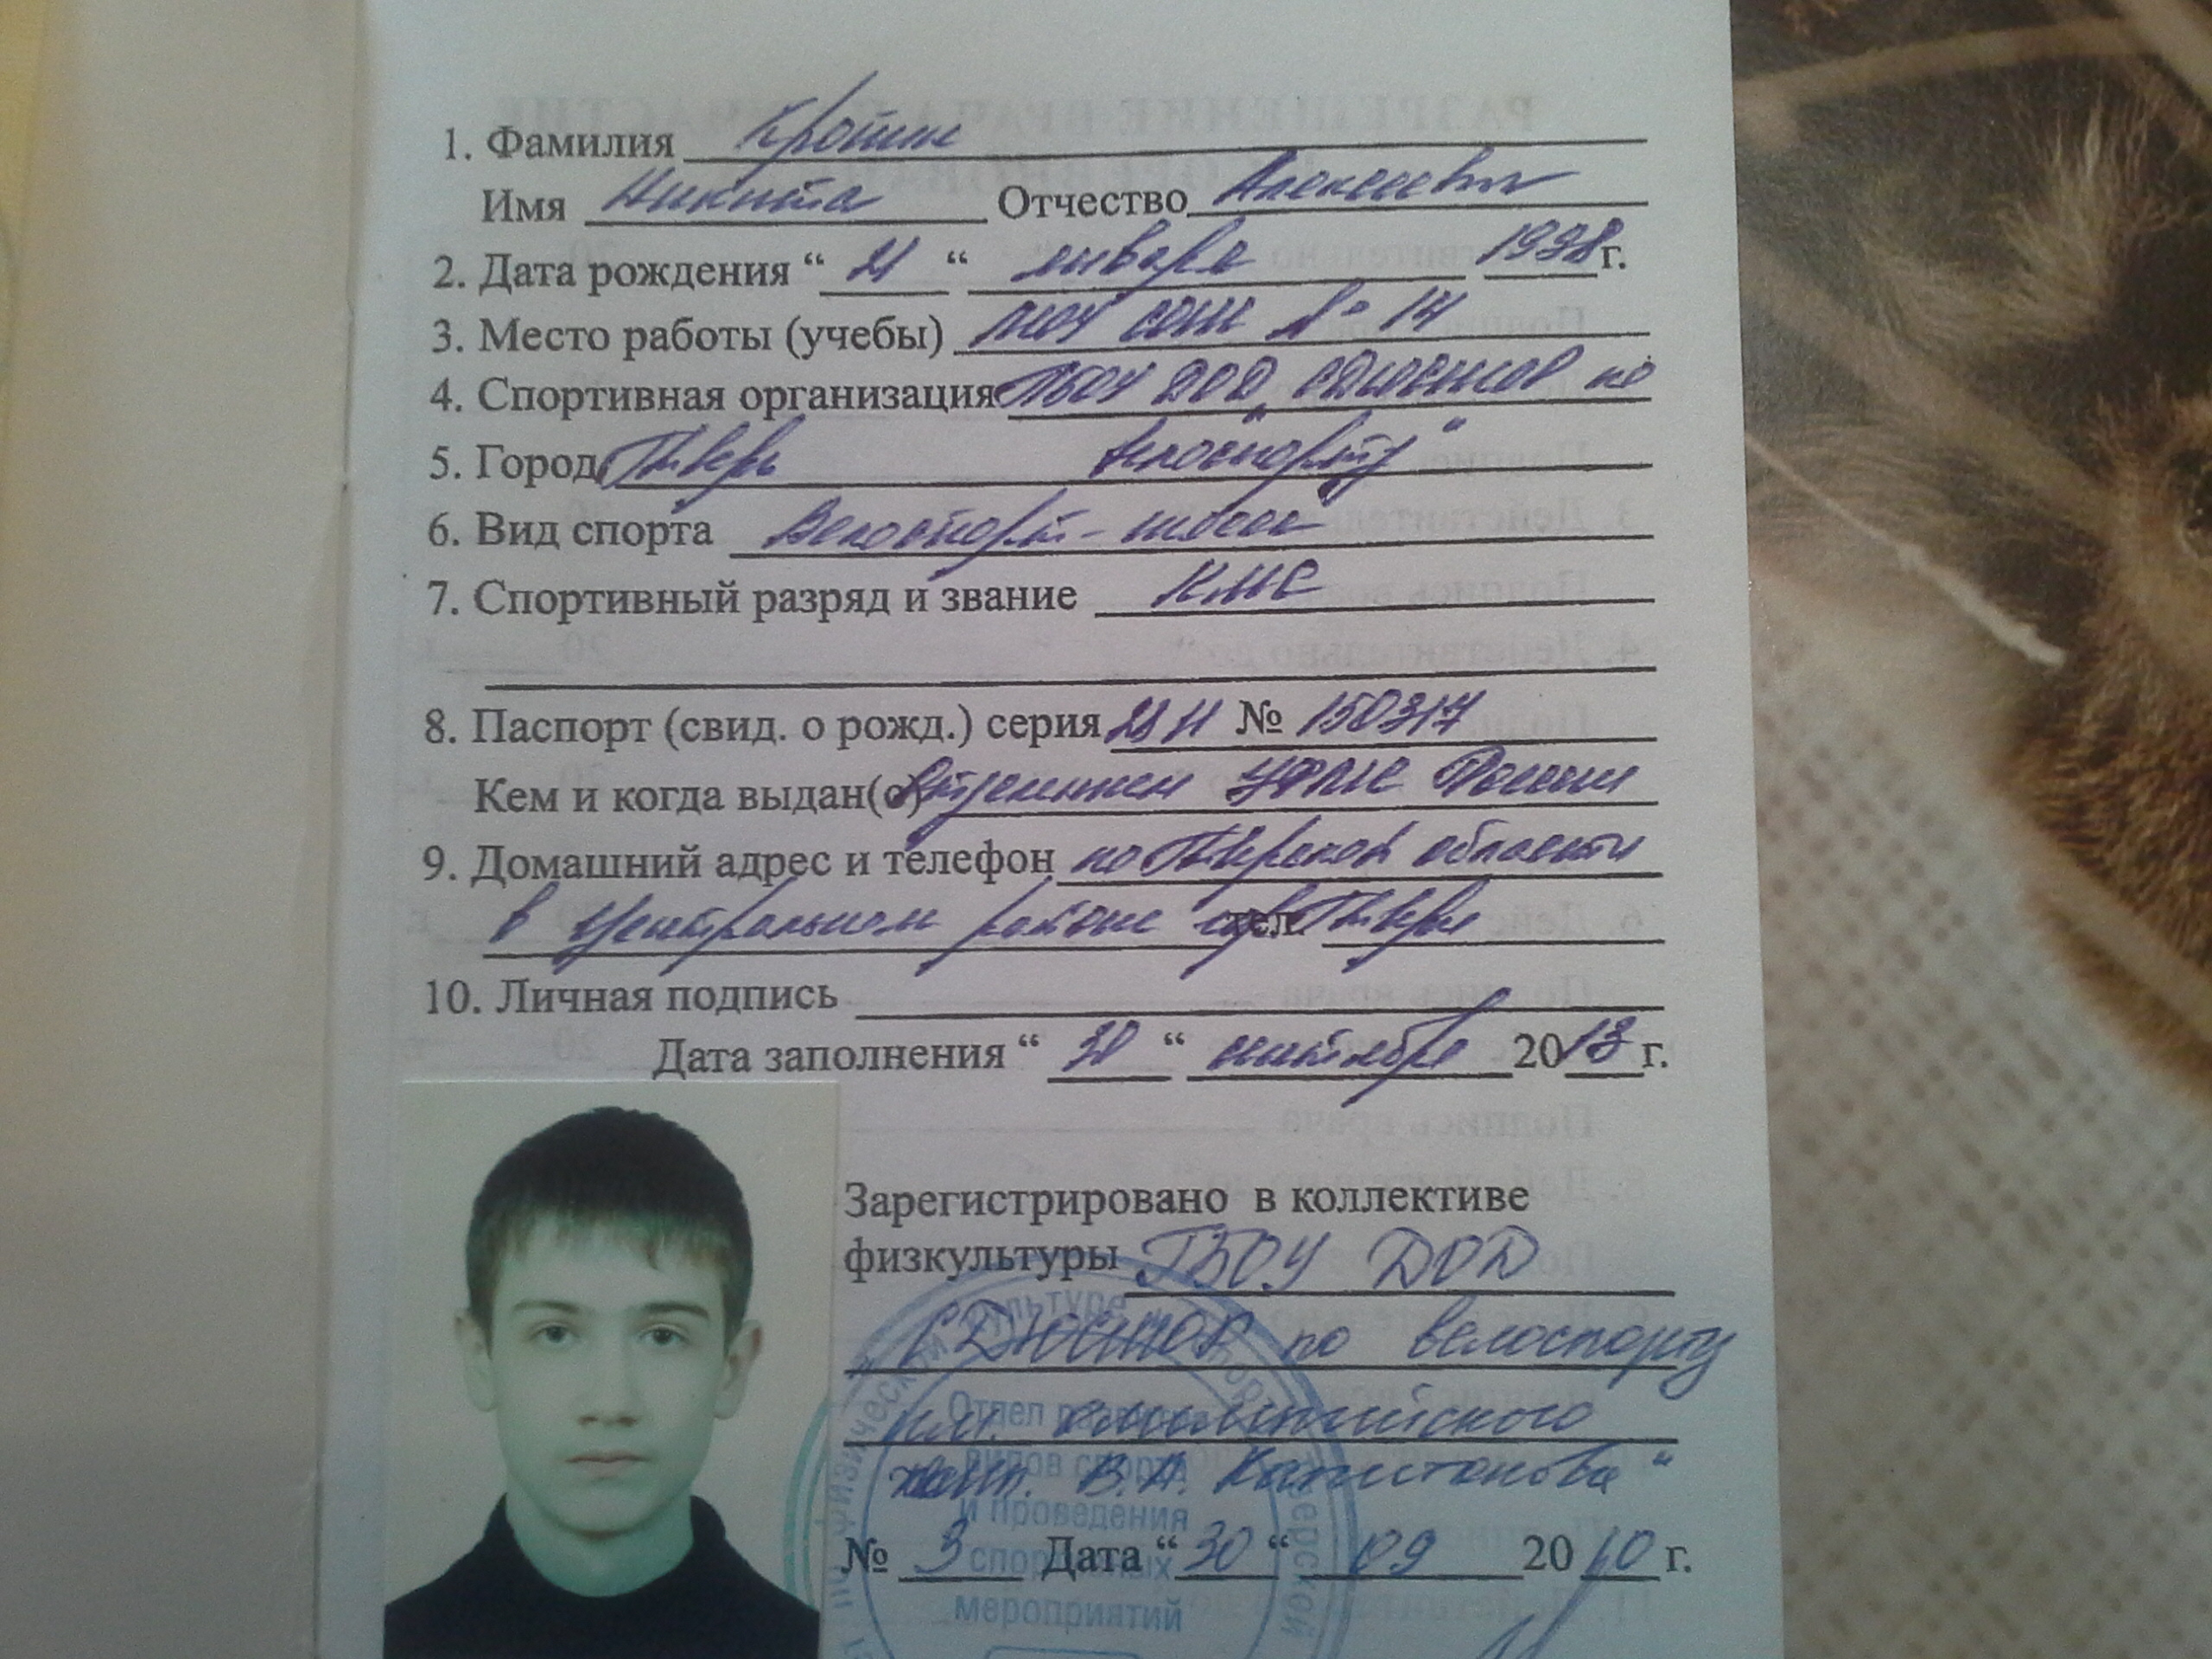 1. Фамилия Кротик
Имя Никита Отчество Алексеевич
2. Дата рождения “ 21 “ января 1998 г.
3. Место работы (учебы) МОУ СОШ № 14
4. Спортивная организация ГБОУ ДОД „СДЮСШОР по
5. Город Тверь велоспорту“
6. Вид спорта Велоспорт - шоссе
7. Спортивный разряд и звание КМС
8. Паспорт (свид. о рожд.) серия № 150317
Кем и когда выдан(о) Отделением УФМС России
9. Домашний адрес и телефон по Тверской области
в Центральном районе гор. тел. Твери
10. Личная подпись
Дата заполнения “ 30 “ сентября 2013 г.
Зарегистрировано в коллективе
физкультуры ГБОУ ДОД
„СДЮСШОР по велоспорту
им. олимпийского
чемп. В.А. Капитонова“
№ 3 Дата “30“ 09 2010 г.
Отдел развития
видов спорта
и проведения
спортивных
мероприятий